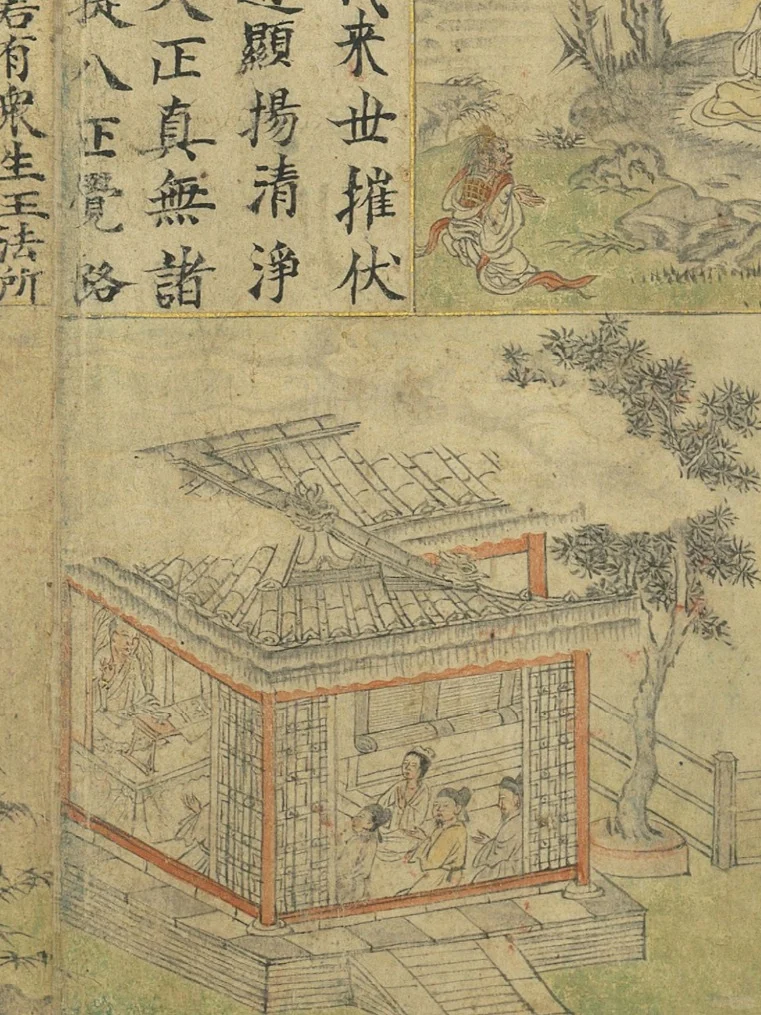 来世摧伏
顯揚清淨
正真無諸
提八正覺路
若有衆生王法所